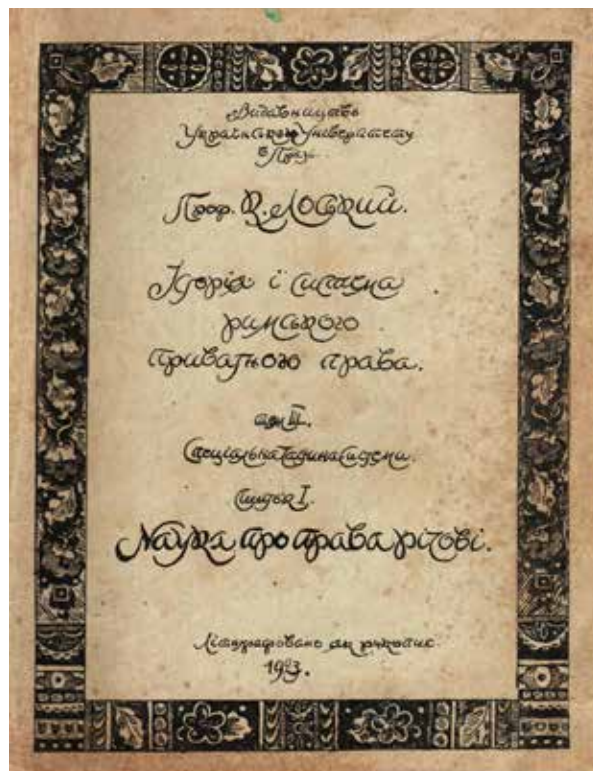 Видавництво
Українського Університету
в Празі.
Проф. К. Лоський.
Історія і система
римського
приватного права.
том III.
Спеціяльна частина системи.
Випуск I.
Наука про права річові.
Літографовано як рукопис.
1923.